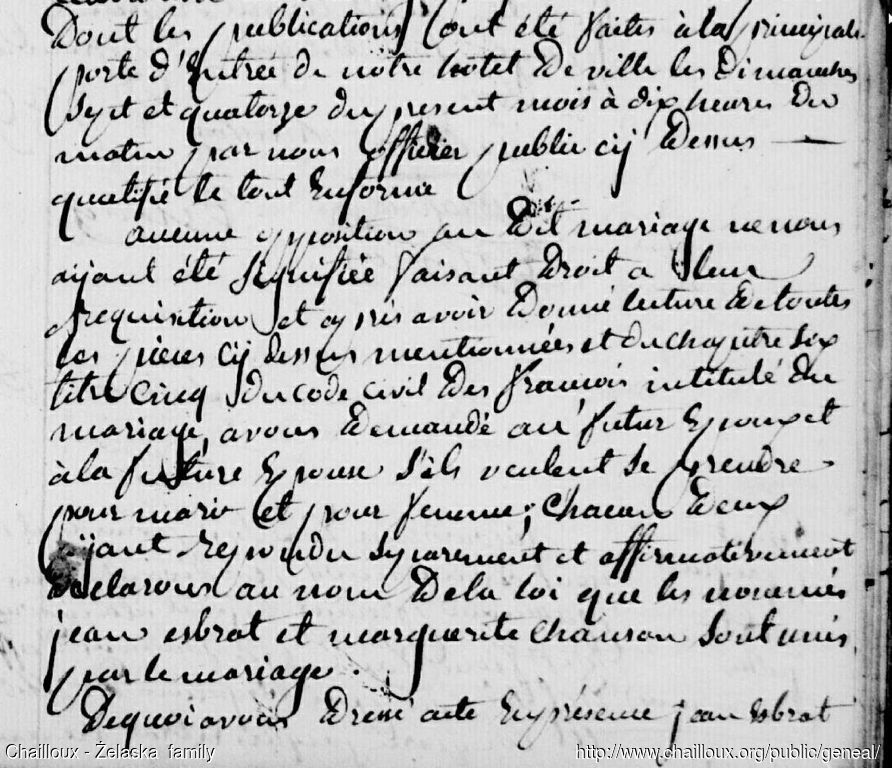 Dont les publications ont été faites à la principale
porte d'Entrée de nôtre hotel De ville les Dimanches
sept et quatorze du present mois à dix heures Du
matin par nous officier public cij Dessus
qualifié le tout En forme
aucune opposition au Dit mariage ne nous
aijant été signifiée faisant Droit a leur
requisition et apprès avoir Donné lecture De toutes
les pieces cij dessus mentionnées et du chapitre six
titre Cinq du code civil Des francois intitulé Du
mariage, avons Demandé au futur Epoux et
à la future Epouse s'ils veulent se prendre
pour mari et pour femme; chacun Deux
aijant repondu séparement et affirmativement
Declarons au nom De la loi que les nommés
jean esbrat et marguerite chanson sont unis
par le mariage
De quoi avons Dressé acte En présence jean Esbrat
Chailloux - Želaska family
http://www.chailloux.org/public/geneal/